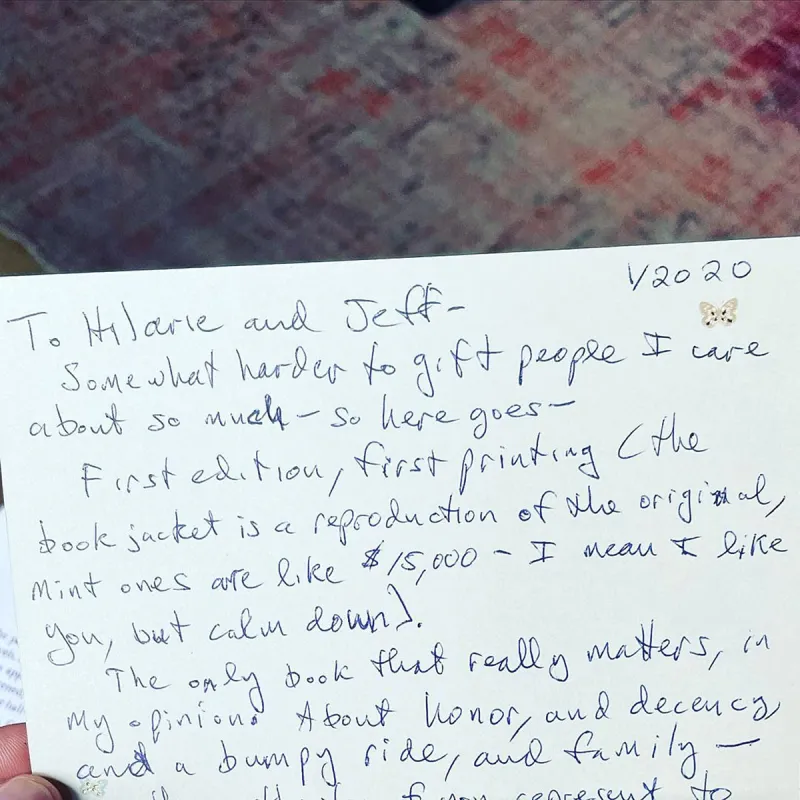 1/2020
To Hilarie and Jeff-
Somewhat harder to gift people I care
about so much - so here goes-
First edition, first printing (the
book jacket is a reproduction of the original,
mint ones are like $15,000 - I mean I like
you, but calm down).
The only book that really matters, in
my opinion. About honor, and decency
and a bumpy ride, and family -
of you represent to